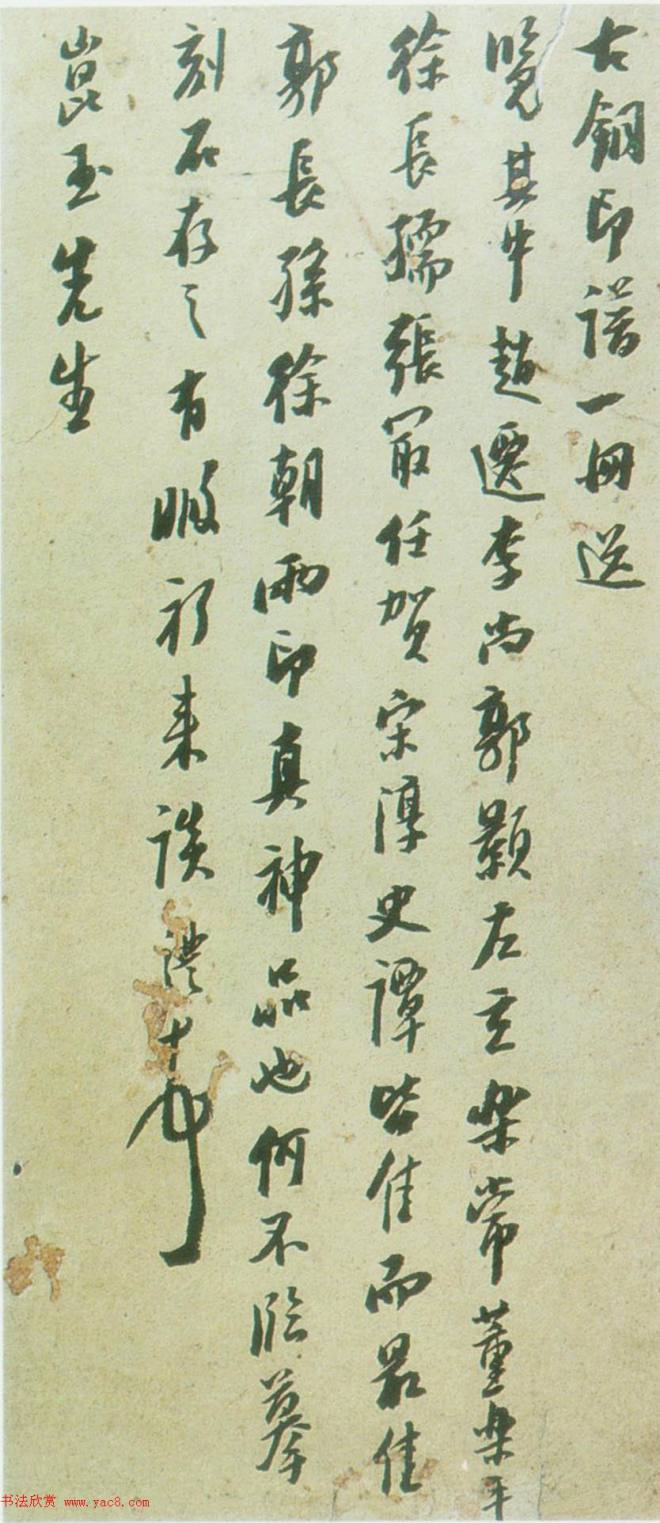 古銅印譜一冊送
覽其中趙遷李尚郭顥左立樂常董樂平
徐長孺張冣任賀宋淳史譚皆佳而最佳
郭長孫徐朝雨印真神品也何不臨摹
刻石存之有暇祈来談
崑玉先生
书法欣赏 www.yac8.com